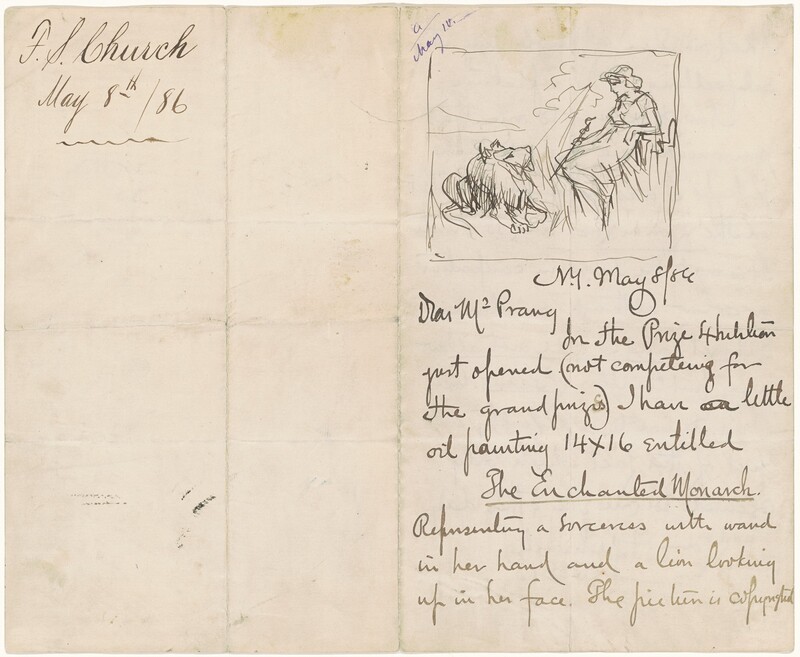 F. S. Church
May 8th /86
a
May 10.
N.Y. May 8/86
Dear Mr Prang
In the Prize Exhibition
just opened (not competing for
the grand prizes) I have a little
oil painting 14x16 entitled
The Enchanted Monarch.
Representing a sorceress with wand
in her hand and a lion looking
up in her face. The picture is copyrighted